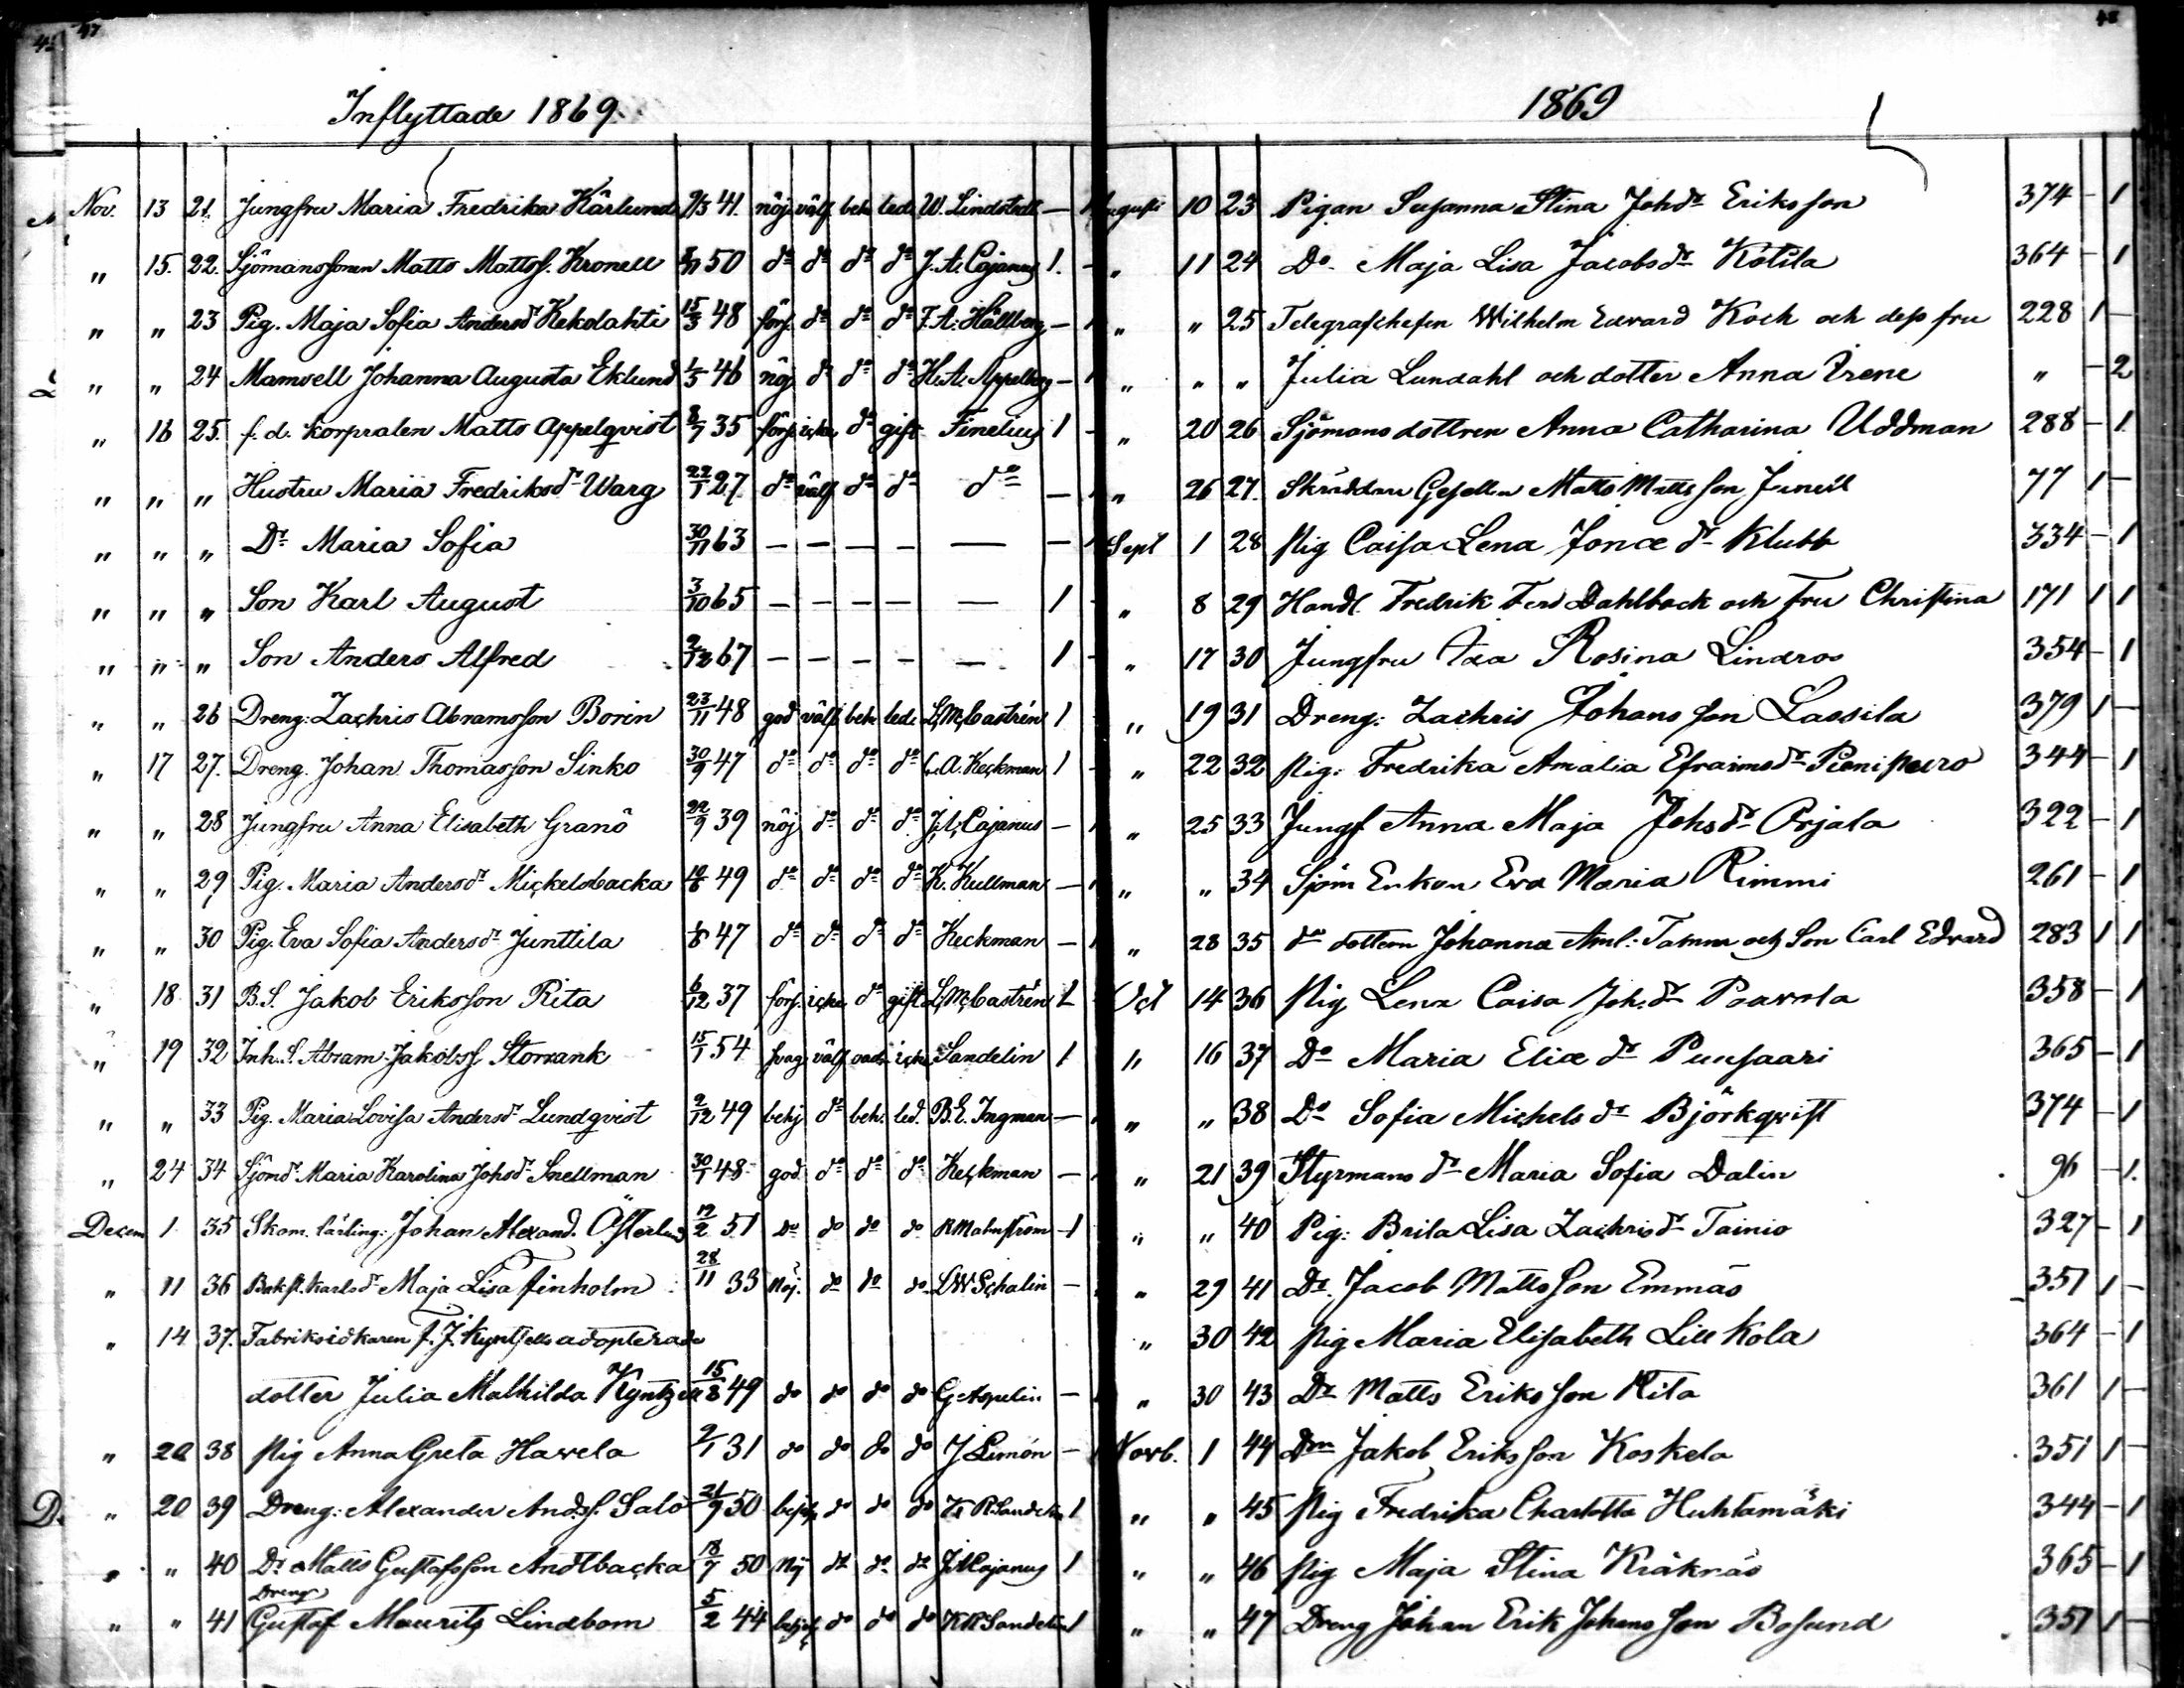 47
Inflyttade 1869
Nov. 13 21. Jungfru Maria Fredrika Kârlund 41. nöj välf beh led. W. Lindstedt —
" 15. 22. Sjömanssonen Matts Mattss. Kronell 50 do do do do J. A. Cajanus 1.
" " 23 Pig. Maja Sofia Andersdr Kekolahti 15/3 48 förs. do do do F. A. Hällberg —
" " 24 Mamsell Johanna Augusta Eklund 1/3 46 nöj do do do H. A. Appelberg —
" 16 25. f. d. korpralen Matts Appelqvist 8/7 35 förs. icke do gift Finelius 1
" " " Hustru Maria Fredriksdr Warg 22/1 27 do välf do do do —
" " " Dr Maria Sofia 30/11 63 — — — — — —
" " " Son Karl August 3/10 65 — — — — — 1
" " " Son Anders Alfred 2/12 67 — — — — — 1
" " 26 Dreng: Zachris Abramsson Borin 23/11 48 god välf. beh. led. L. M. Castrén 1
" 17 27. Dreng. Johan Thomasson Sinko 30/9 47 do do do do A. Keckman 1
" " 28 Jungfru Anna Elisabeth Granö 22/9 39 nöj do do do J. A. Cajanus —
" " 29 Pig. Maria Andersdr Mickelsbacka 49 do do do do K. Kullman —
" " 30 Pig. Eva Sofia Andersdr Junttila 1/8 47 do do do do Keckman —
" 18 31 B.S. Jakob Eriksson Rita 6/12 37 förs. icke do gift L. M. Castrén 1
" 19 32 Inh. S. Abram Jakobss. Storrank 15/1 54 svag välf oadm. icke Sandelin 1
" " 33 Pig. Maria Lovisa Andersdr Lundqvist 2/12 49 behj do beh. led. B. E. Ingman —
" 24 34 Sjömdr Maria Karolina Johsdr Snellman 30/1 48 god do do do Keckman —
Decem 1 35 Skom. lärling: Johan Alexand. Österlund 12/2 51 do do do do R Malmström 1
" 11 36 Karlsdr Maja Lisa Finholm 28/11 33 Nöj. do do do L W Schalin —
" 14 37. Fabriksidkaren F. J. Kyntzells adopterade
dotter Julia Mathilda Kyntzell 15/8 49 do do do do G. Aspelin —
" 20 38 Pig Anna Greta Hawela 2/1 31 do do do do J Simón —
" 20 39 Dreng: Alexander Ands. Salo 21/9 50 do do do K R Sandelin 1
" " 40 Dr Matts Gustafsson Andtbacka 18/7 50 Nöj do do do J A Cajanus 1
Dreng
" " 41 Gustaf Maurits Lindbom 5/2 44 do do do K R Sandelin 1
48
1869
Augusti 10 23 Pigan Susanna Stina Johdr Eriksson 374 — 1
" 11 24 Do Maja Lisa Jacobsdr Kotila 364 — 1
" " 25 Telegrafchefen Wilhelm Edvard Koch och dess fru 228 1 —
" " " Julia Lundahl och dotter Anna Irene " — 2
" 20 26 Sjömansdottren Anna Catharina Uddman 288 — 1
" 26 27. Skräddare Gesellen Matts Mattsson Junell 77 1 —
Sept 1 28 Pig Caisa Lena Jonæ dr Klubb 334 — 1
" 8 29 Handl. Fredrik Ferd Dahlbäck och Fru Christina 171 1 1
" 17 30 Jungfru Ida Rosina Lindros 354 — 1
" 19 31 Dreng: Zachris Johansson Lassila 379 1 —
" 22 32 Pig: Fredrika Amalia Efraimsdr Pienipuro 344 — 1
" 25 33 Jungf Anna Maja Johsdr Orjala 322 — 1
" " 34 Sjöm Enkan Eva Maria Rimmi 261 — 1
" 28 35 do dottern Johanna Aml: Tamm och Son Carl Edvard 283 1 1
Oct 14 36 Pig Lena Caisa Joh.dr Paavola 358 — 1
" 16 37 Do Maria Eliæ dr Puusaari 365 — 1
" " 38 Do Sofia Michels dr Björkqvist 374 — 1
" 21 39 Styrmans dr Maria Sofia Dalin 96 — 1.
" " 40 Pig: Brita Lisa Zachrisdr Tainio 327 — 1
" 29 41 Dr. Jacob Mattsson Emmäs 351 1 —
" 30 42 Pig Maria Elisabeth Lill Kola 364 — 1
" 30 43 Dr Matts Eriksson Rita 361 1 —
Novb. 1 44 Drn Jakob Eriksson Koskela 351 1 —
" " 45 Pig Fredrika Charlotta Huhtamäki 344 — 1
" " 46 Pig Maja Stina Kråknäs 365 — 1
" " 47 Dreng Johan Erik Johansson Bosund 351 1 —